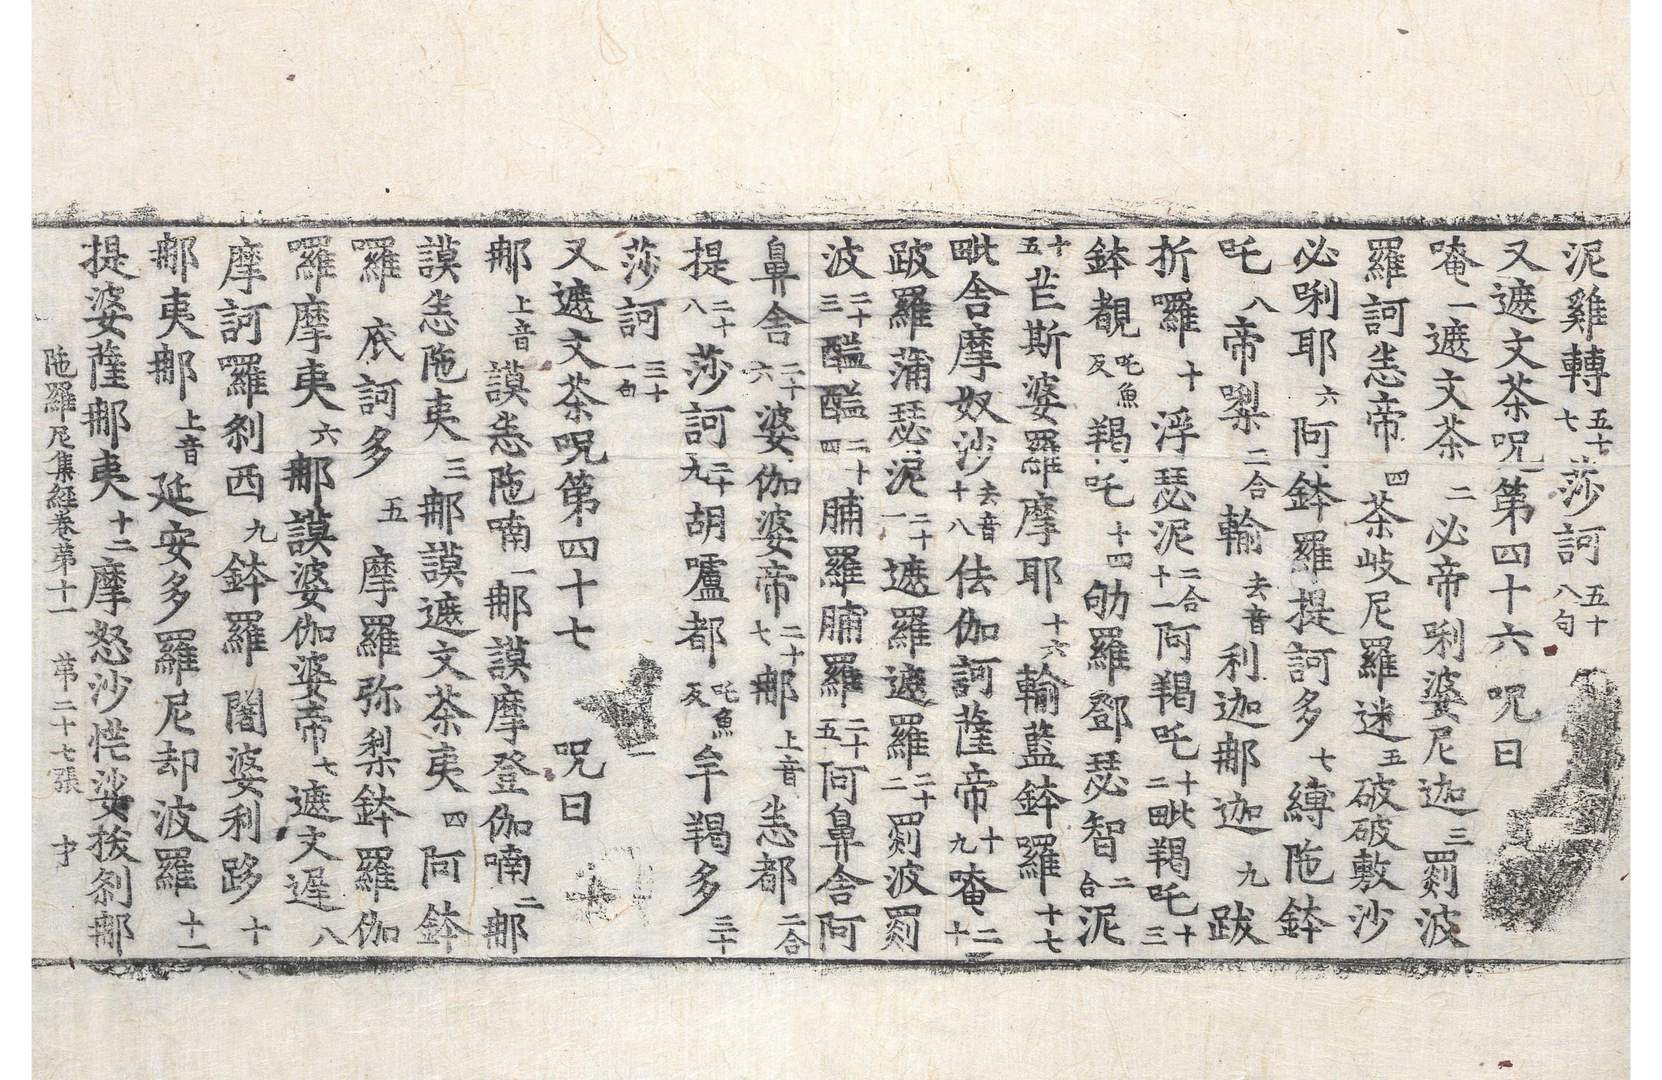 泥雞轉五十七莎訶五十八句
又遮文茶呪第四十六呪曰
唵一遮文茶二必帝唎婆尼迦三罰波
羅訶恙帝四茶岐尼羅迷五破破敷沙
必唎耶六阿鉢羅提訶多七縛陁鉢
吒八帝㗚二合輸去音利迦那迦九跋
折囉十浮瑟泥二合十一阿羯吒十二毗羯吒十三
鉢覩吒魚反羯吒十四劬羅鄧瑟智二合泥
十五芒斯婆羅摩耶十六輸藍鉢羅十七
毗舍摩奴沙去音十八佉伽訶薩帝十九唵二十
跛羅蒲瑟泥二十一遮羅遮羅二十二罰波罰
波二十三醯醯二十四脯羅脯羅二十五阿鼻舍阿
鼻舍二十六婆伽婆帝二十七那上音恙都二合
提二十八莎訶二十九胡嚧都吒魚反牟羯多三十
莎訶三十一句
又遮文茶呪第四十七 呪曰
那上音謨恙陁喃一那謨摩登伽喃二那
謨恙陁夷三那謨遮文茶夷四阿鉢
囉底訶多五摩羅弥梨鉢羅伽
囉摩夷六那謨婆伽婆帝七遮文遲八
摩訶囉剎西九鉢羅闍婆利跢十
那夷那上音延安多羅尼却波羅十一
提婆薩那夷十二摩怒沙恾娑拔剎那
陁羅尼集經卷第十一 第二十七張 才